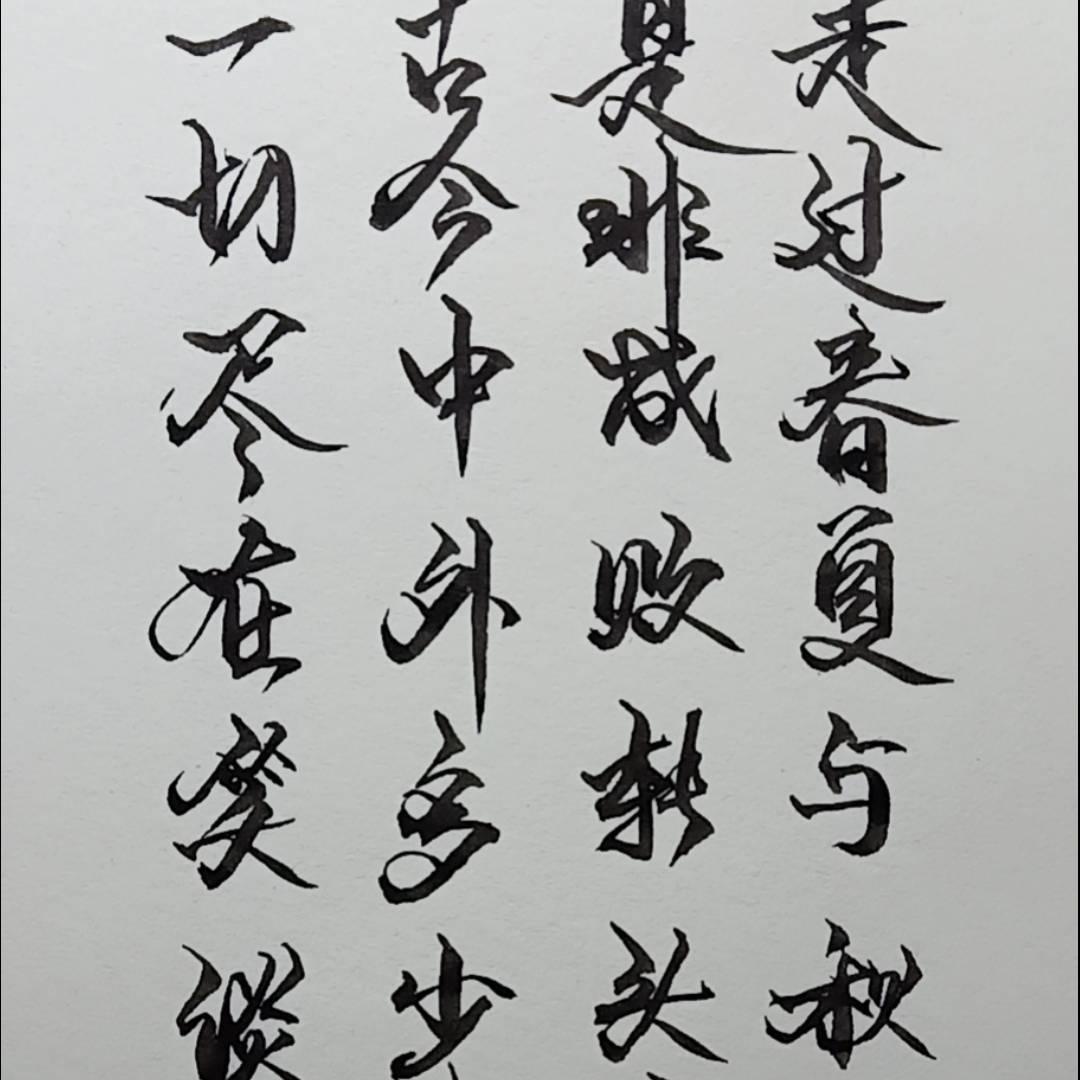 走过春夏与秋
是非成败转头
古今中外多少
一切尽在笑谈